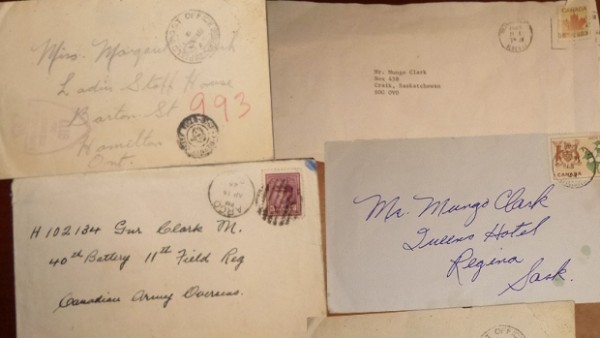 Miss. Margaret Clark
Ladies Staff House
Barton St
993
Hamilton
Ont.
POST OFFICE
CANADA
Mr. Mungo Clark
Box 458
Craik, Saskatchewan
CANADA
Mr. Mungo Clark
Queens Hotel
Regina
Sask.
H 102134 Gnr Clark M.
40th Battery 11th Field Reg
Canadian Army Overseas.